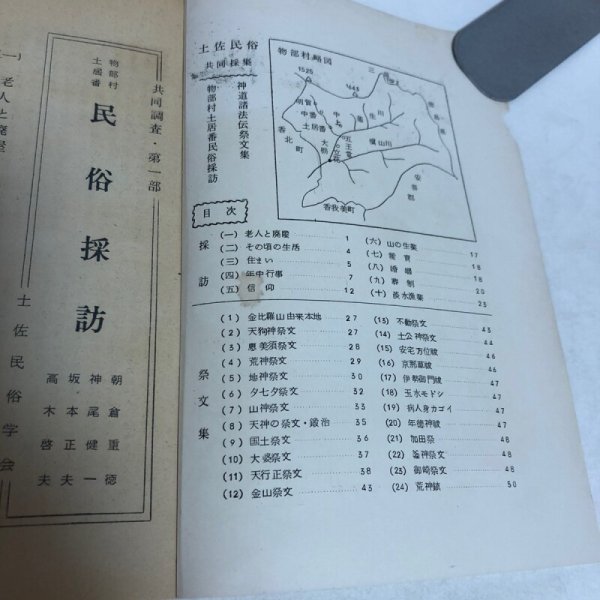 土佐民俗
共同採集
神道諸法伝祭文集
物部村土居番民俗採訪
物部村略図
香北町
香我美町
安芸郡
目次
採訪
(一) 老人と廃屋 1
(二) その頃の生活 4
(三) 住まい 5
(四) 年中行事 7
(五) 信仰 12
(六) 山の生業 17
(七) 養育 18
(八) 婚姻 18
(九) 葬制 20
(十) 淡水漁業 23
祭文集
(1) 金比羅山由来本地 27
(2) 天狗神祭文 27
(3) 恵美須祭文 28
(4) 荒神祭文 29
(5) 地神祭文 30
(6) 夕七夕祭文 32
(7) 山神祭文 33
(8) 天神の祭文・鍛治 35
(9) 国土祭文 36
(10) 大婆祭文 37
(11) 天行正祭文 38
(12) 金山祭文 43
(13) 不動祭文 43
(14) 土公神祭文 44
(15) 安宅方位祓 46
(16) 京那章祓 46
(17) 伊勢御門祓 47
(18) 玉水モドシ 47
(19) 病人身カゴイ 47
(20) 年徳神祓 47
(21) 加田祭 48
(22) 釜神祭文 48
(23) 御崎祭文 48
(24) 荒神鎮 50
共同調査・第一部
物部村
土居番
民俗採訪
朝倉重徳
神尾健一
坂本正夫
高木啓夫
土佐民俗学会
(一) 老人と廃屋